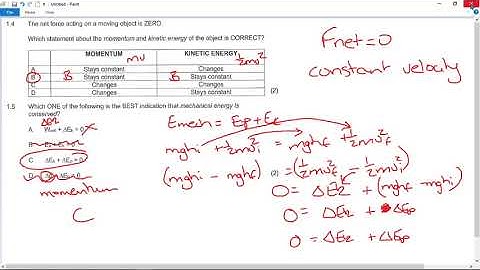 Untitled - Paint
File
Home
View
1.4 The net force acting on a moving object is ZERO.
Which statement about the momentum and kinetic energy of the object is CORRECT?
MOMENTUM mv KINETIC ENERGY ½mv²
A Stays constant Changes
B Stays constant Stays constant
C Changes Stays constant
D Changes Changes
(2)
Fnet=0
constant velocity
1.5 Which ONE of the following is the BEST indication that mechanical energy is
conserved?
A.
B.
C
D
(2)
momentum
C
Emech = Ep + Ek
mghi + ½mvi² = mghf + ½mvf²
(mghi - mghf) = (½mvf² - ½mvi²)
0 = ΔEk + (mghf - mghi)
0 = ΔEk + ΔEp
0 = ΔEk + ΔEp